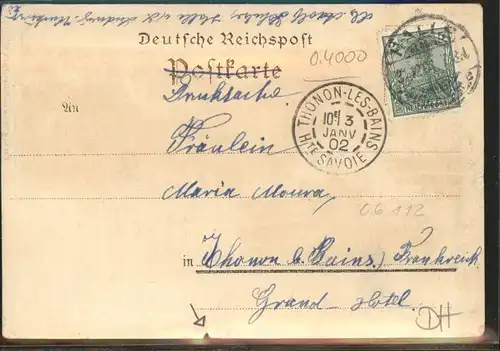 Deutsche Reichspost
Postkarte
0.4000
Drucksache.
An
Fräulein
HALLE
THONON-LES-BAINS
10E 3
JANV
02
HTE SAVOIE
Maria Moura,
06 112
in Thonon les Bains, Frankreich
Grand Hotel.
DH